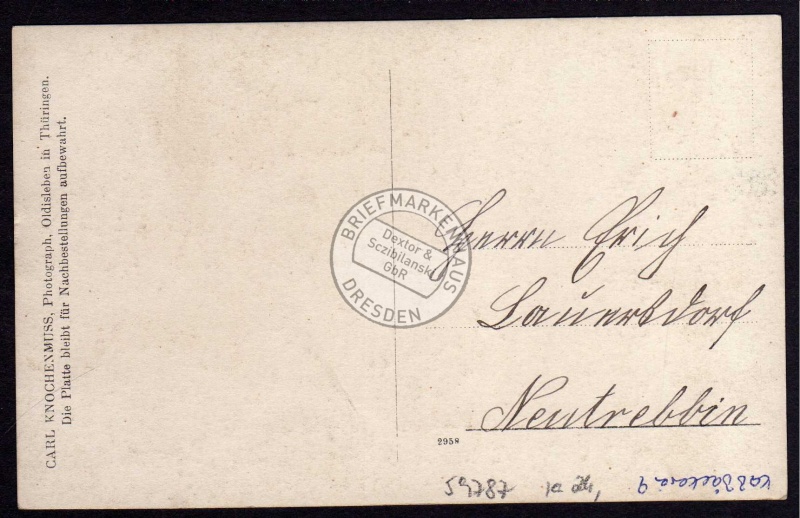 CARL KNOCHENMUSS, Photograph, Oldisleben in Thüringen.
Die Platte bleibt für Nachbestellungen aufbewahrt.
BRIEFMARKENHAUS
Dextor &
Sczibilanski
GbR
DRESDEN
Herrn Erich
Lauersdorf
Neutrebbin
2958
59787